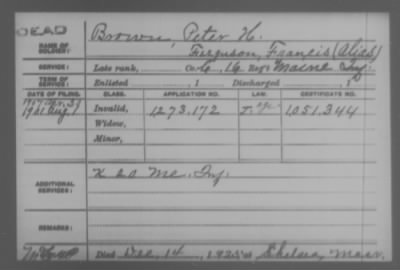 DEAD
NAME OF SOLDIER:
Brown, Peter H.
Ferguson, Francis (Alias)
SERVICE:
Late rank, Co. C, 16 Reg't Maine Inf.
TERM OF SERVICE:
Enlisted , 1 Discharged , 1
DATE OF FILING. CLASS. APPLICATION NO. LAW. CERTIFICATE NO.
1901 Aug 1 Invalid, 1273,172 1,051,344
Widow,
Minor,
ADDITIONAL SERVICES:
K 20 Me. Inf.
REMARKS:
Died Dec. 14, 1925 at Chelsea, Mass.